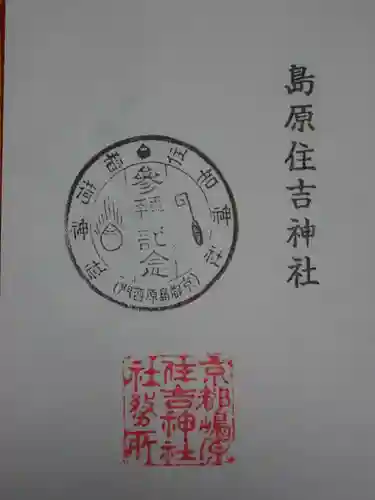 島原住吉神社
住吉神社
神社
記念
(京都島原西門)
京都嶋原
住吉神社
社務所